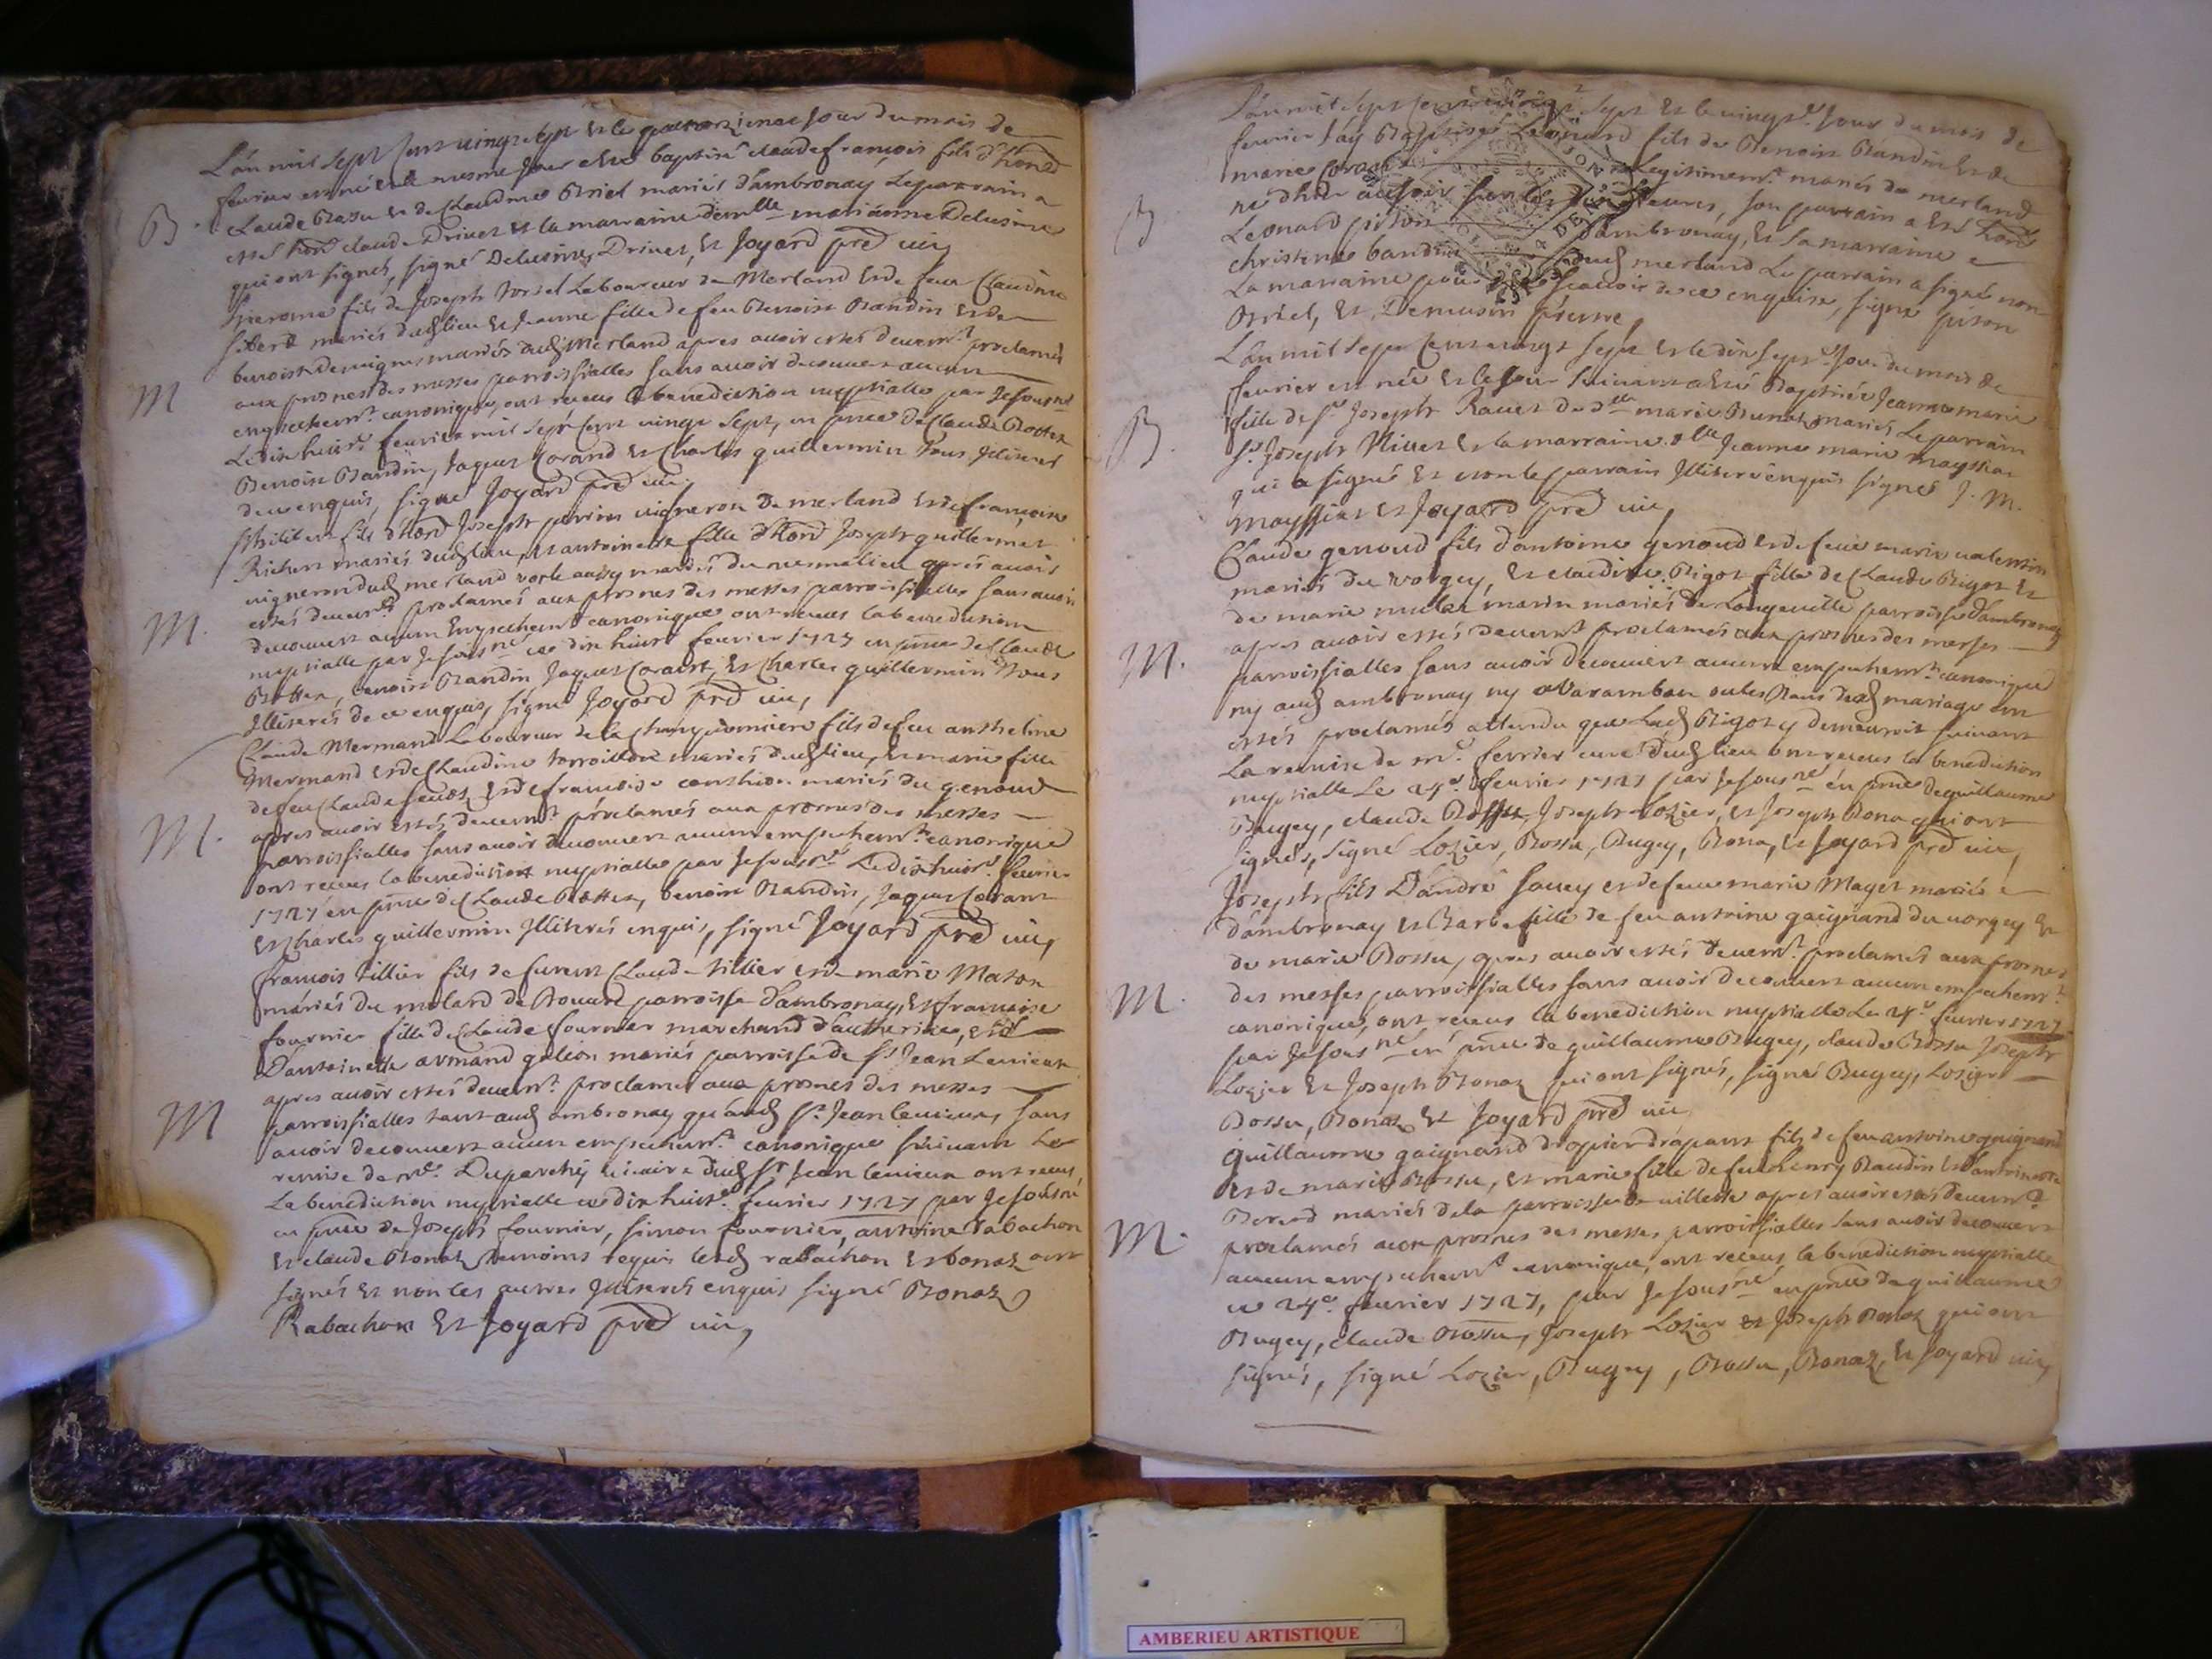 L'an mil sept cent vingt sept et le quatorzieme jour du mois de
fevrier est né et le mesme jour a été baptisé claude françois fils d'hon.
Claude et de Claudine Briel mariés d'ambronay le parrain a
B.
esté hon. claude Drivet et la marraine demlle marianne Delusine
qui ont signés, signé Delusine, Drivet, et Joyard prê vic,
hierome fils de Joseph Laboureur de Merland et de feue Claudine
mariés dud lieu et Jeanne fille de feu Benoist Bandin et de
benoiste mariés dud Merland apres avoir estés devemt proclamés
aux prosnes des messes parroissialles sans avoir decouvert aucun
M
empechemt canonique, ont receus la benediction nuptialle par Je sousné
Le dix huit fevrier mil sept cent vingt sept, en pnce de Claude
Benoist Bandin, Jaques Corand et Charles guillermin tous Illiterés
de ce enquis, signé Joyard prê vic.
Philibert fils d'hon. Joseph perrin vigneron de merland et de françoise
Richert mariés dud lieu, et antoinette fille d'hon. Joseph guillermet
vigneron dud merland aussy mariés du mesme lieu apres avoir
estés devemt proclamés aux prosnes des messes parroissialles sans avoir
M.
decouvert aucun Empechemt canonique ont receus la benediction
nuptialle par Je sousné ce dix huit fevrier 1727 en pnce de Claude
benoist Bandin, Jaques Corant, et Charles guillermin tous
Illiterés de ce enquis, signé Joyard prê vic,
Claude Mermand Laboureur de la championniere fils de feu anthelme
Mermand et de Claudine mariés dud lieu, et marie fille
de feu Claude et de françoise mariés du genoud
apres avoir estés devemt proclamés aux prosnes des messes
M.
parroissialles sans avoir decouvert aucun empechemt canonique
ont receus la benediction nuptialle par Je sousné Le dixhuit fevrier
1727 en pnce de Claude benoist Bandin, Jaques Corant
et Charles guillermin Illiterés enquis, signé Joyard prê vic,
françois tillier fils de furent Claude tillier et de marie Maton
mariés du molard de parroisse d'ambronay, et françoise
fournier fille de Claude fournier marchand et
D'antoinette armand mariés parroisse de St Jean Levieux
apres avoir estés devemt proclamés aux prosnes des messes
M
parroissialles tant aud ambronay qu'aud St Jean levieux, sans
avoir decouvert aucun empechemt canonique suivant La
remise de Mre vicaire dud St Jean levieux ont receus
La benediction nuptialle ce dix huit fevrier 1727 par Je sousné
en pnce de Joseph fournier, simon fournier, antoine rabachon
et claude Bonaz temoins requis lesd rabachon et bonaz ont
signés et non les autres Illiterés enquis signé Bonaz
Rabachon et Joyard prê vic,
L'an mil sept cent vingt sept et le vingt jour du mois de
fevrier J'ay Baptisé Leonard fils de Benoist Bandin et de
marie Corand Legitimemt mariés de merland
B
né d'hier au soir sur les heures, son parrain a esté hon.
Leonard pithon d'ambronay, et sa marraine
christine bandin dud merland Le parrain a signé non
La marraine pour ne scavoir de ce enquise, signé pithon
L'an mil sept cent vingt sept et le dix sept jour du mois de
fevrier est née et le jour suivant a été Baptisée Jeanne marie
fille de Sr Joseph Ravet de dlle marie Bonaz mariés Le parrain
B.
Sr Joseph Nivet et la marraine dlle Jeanne marie mayssiat
qui a signé et non le parrain Illiteré enquis signés J. M.
mayssiat et Joyard prê vic,
Claude genoud fils d'antoine genoud et de feue marie valentin
mariés du vorgey, et claudine Bigot fille de Claude Bigot et
de marie mariés de Longeville parroisse d'ambronay
apres avoir estés devemt proclamés aux prosnes des messes
M.
parroissialles sans avoir decouvert aucun empechemt canonique
ny aud ambronay ny a Varambon ou les Bans dud mariage ont
estés proclamés attendu que Lad Bigot y demeuroit suivant
La remise de mre fevrier curé dud lieu ont receus la benediction
nuptialle Le 24e fevrier 1727 par Je sousné en pnce de guillaume
Bugey, claude Bossu, Joseph Lozier, et Joseph Bonaz qui ont
signés, signé Lozier, Bossu, Bugey, Bonaz, et Joyard prê vic,
Joseph fils D'andré savey et de feue marie Maget mariés
d'ambronay et Barbe fille de feu antoine gaignand du vorgey et
de marie Bossu, apres avoir estés devemt proclamés aux prosnes
M.
des messes parroissialles sans avoir decouvert aucun empechemt
canonique, ont receus la benediction nuptialle Le 24e fevrier 1727
par Je sousné en pnce de guillaume Bugey, claude Bossu Joseph
Lozier et Joseph Bonaz qui ont signés, signé Bugey, Lozier
Bossu, Bonaz et Joyard prê vic
guillaume gaignand drapier drapant fils de feu antoine gaignand
et de marie Bossu, et marie fille de feu henry Baudin et d'antoinette
Berod mariés de la parroisse de villette apres avoir estés devemt
M.
proclamés aux prosnes des messes parroissialles sans avoir decouvert
aucun empechemt canonique, ont receus la benediction nuptialle
ce 24e fevrier 1727, par Je sousné en pnce de guillaume
Bugey, claude Bossu, Joseph Lozier et Joseph Bonaz qui ont
signés, signé Lozier, Bugey, Bossu, Bonaz, et Joyard vic,
AMBERIEU ARTISTIQUE